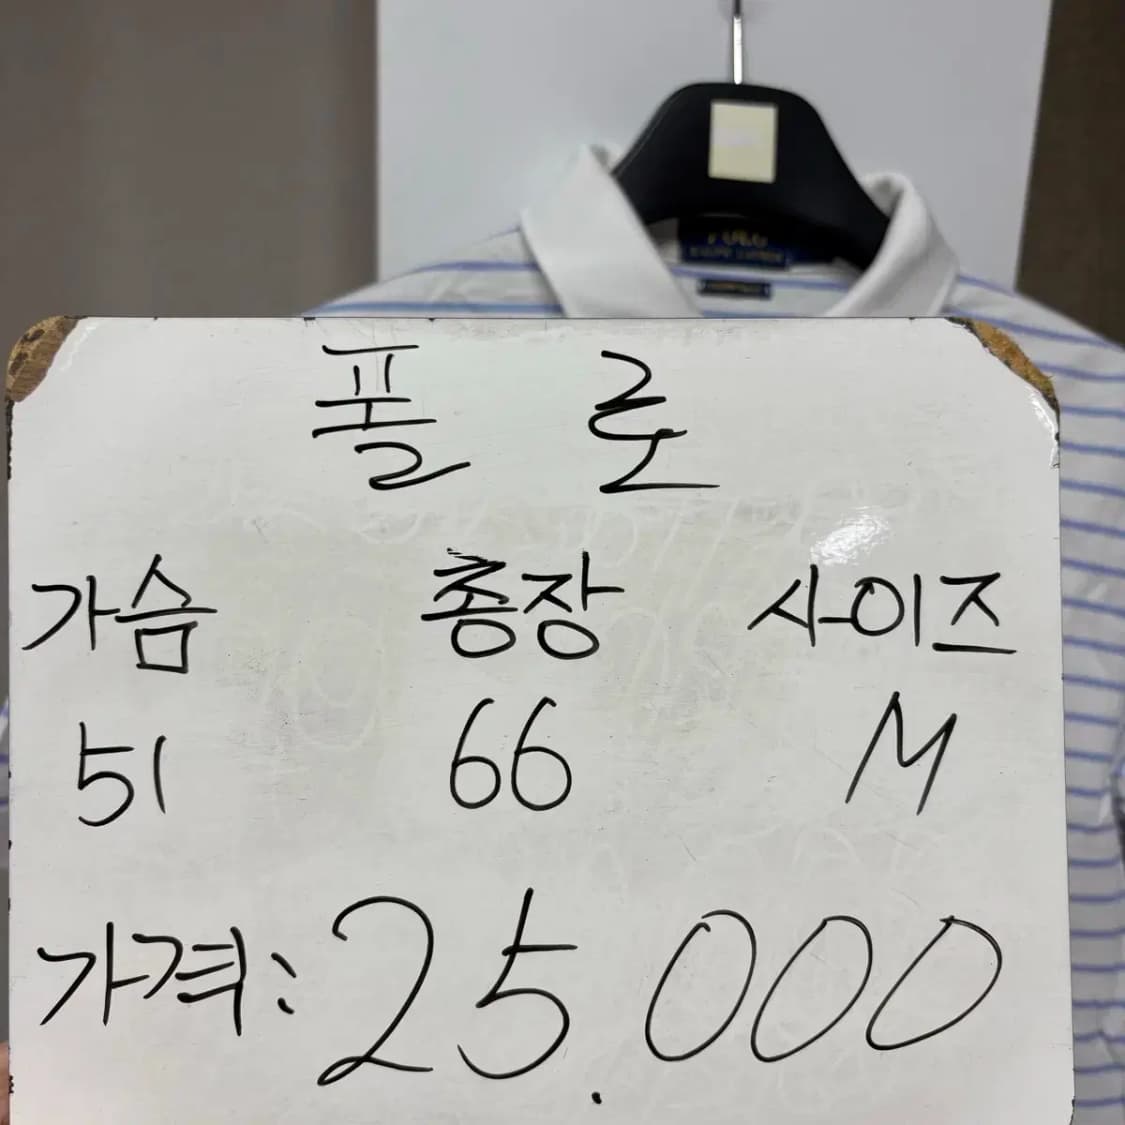 POLO
RALPH LAUREN
폴 로
가슴 총장 사이즈
51 66 M
가격: 25.000